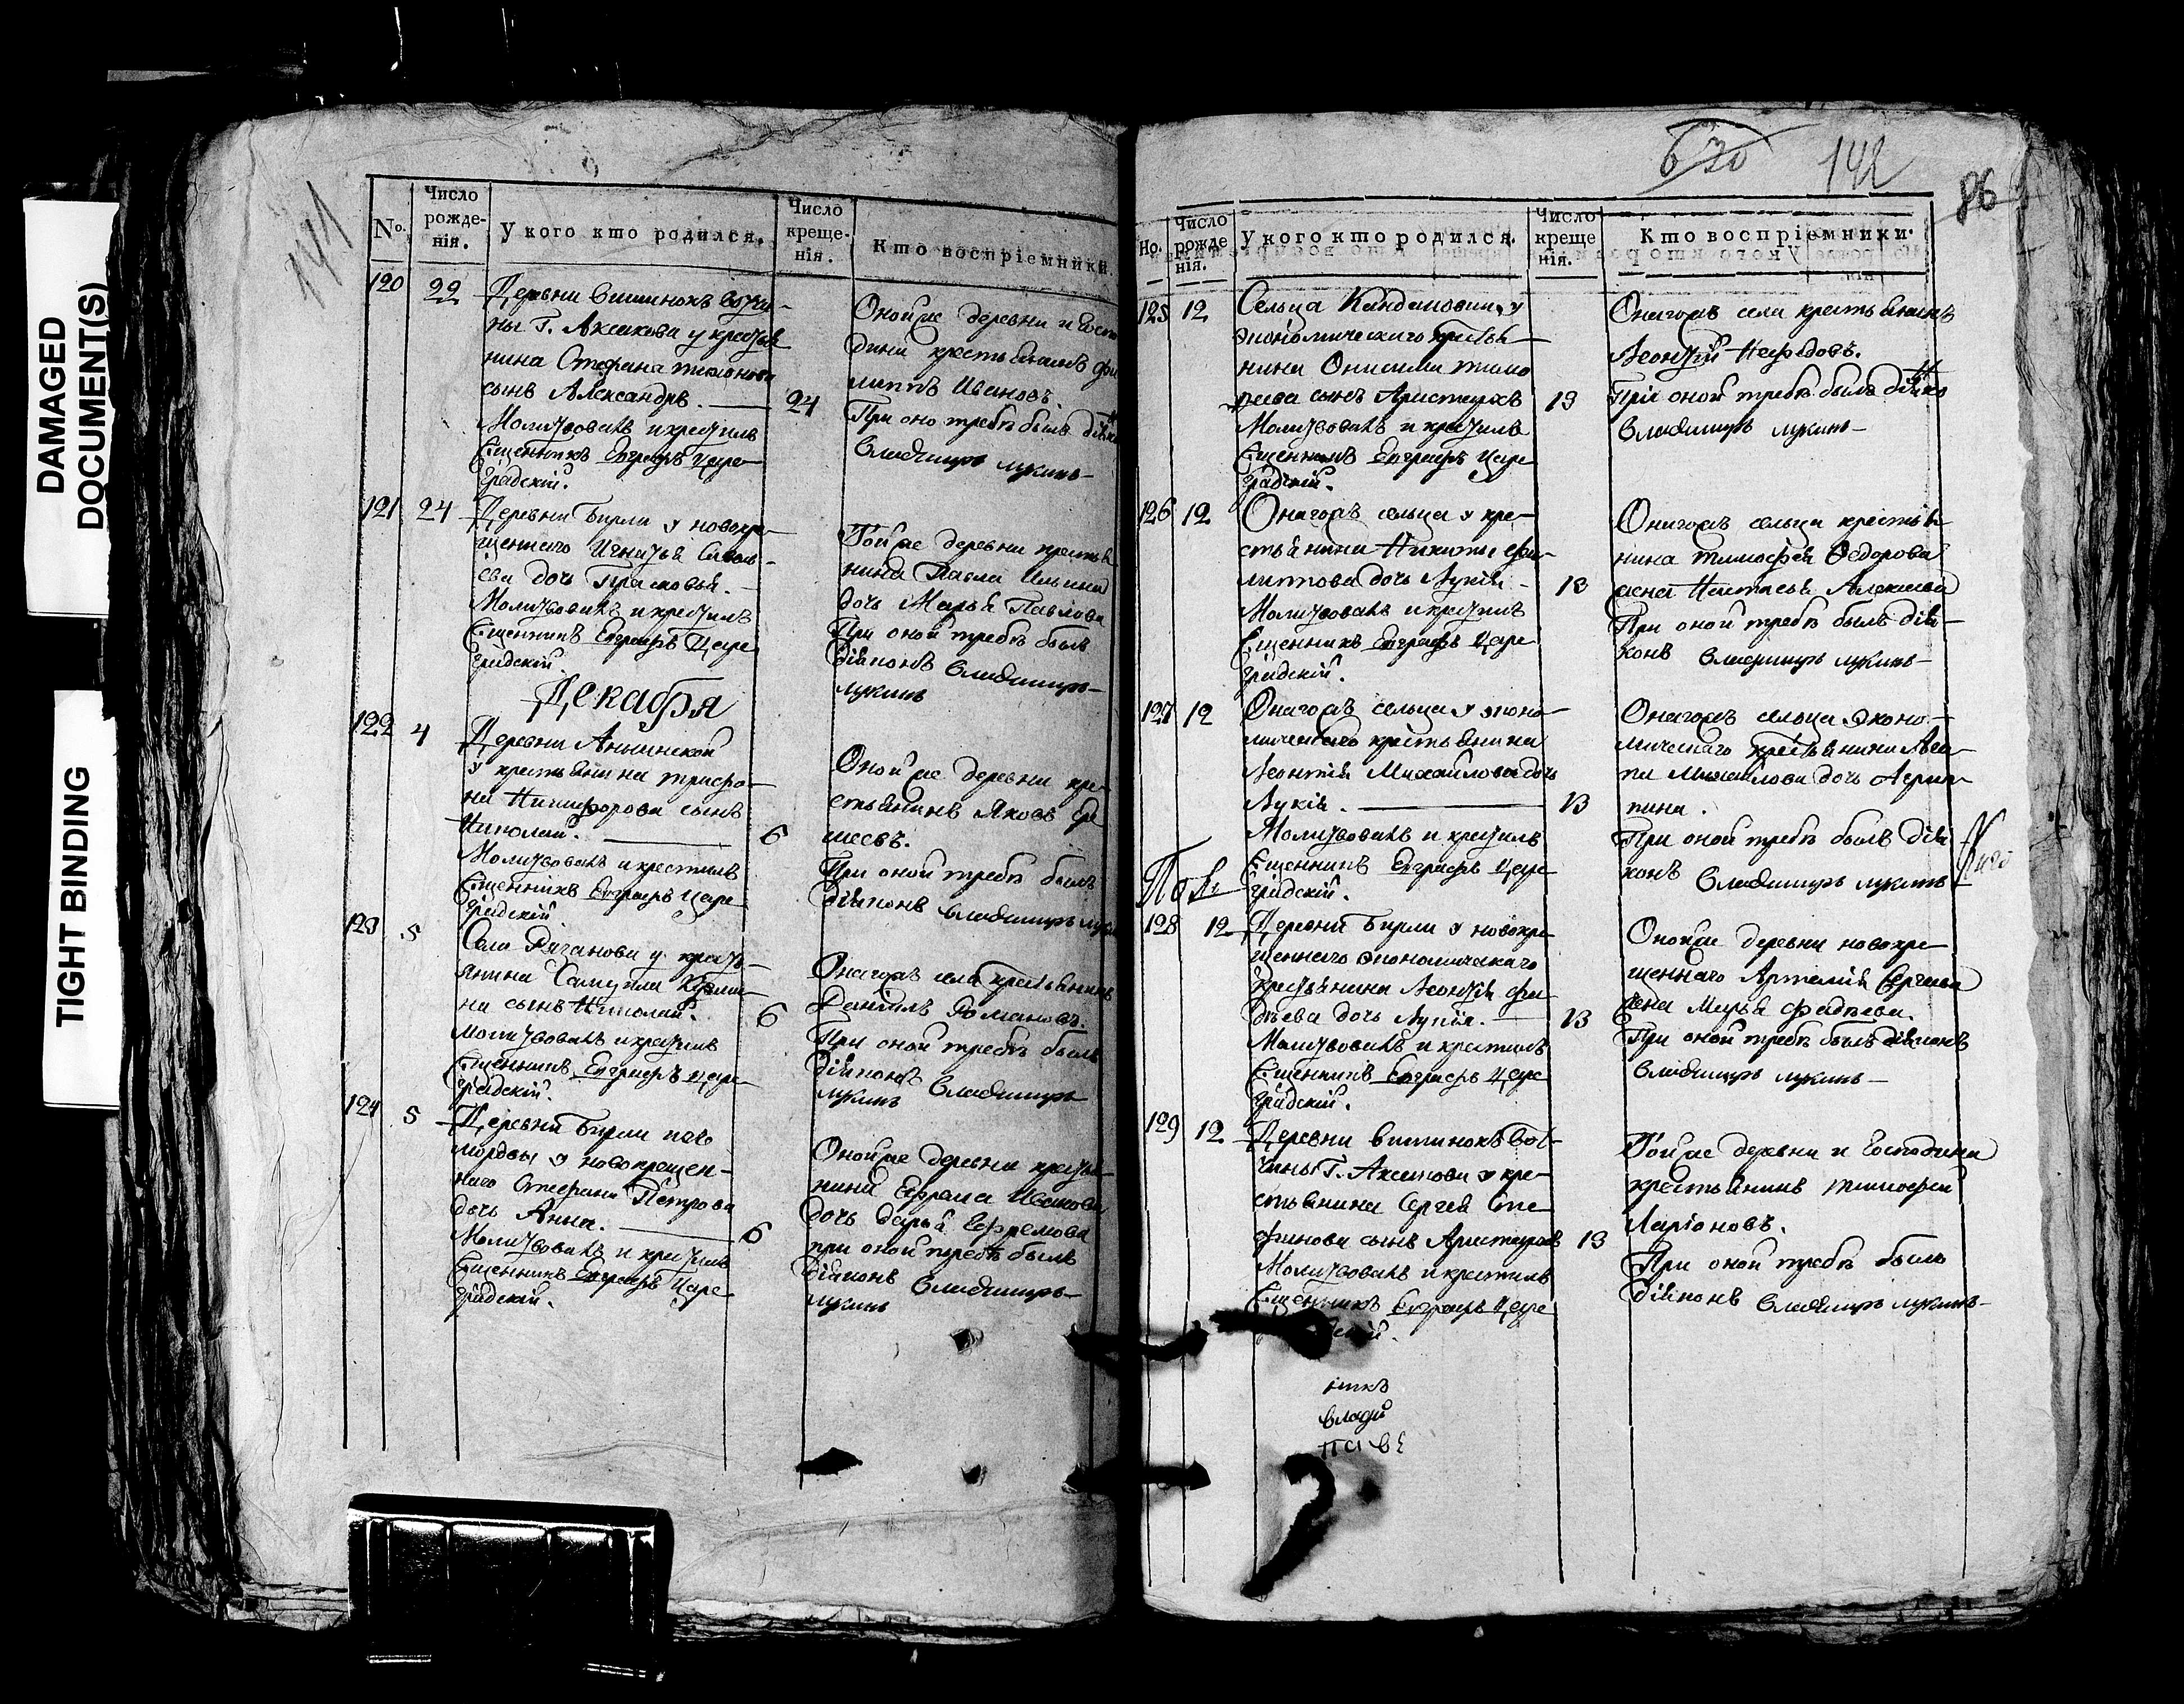 DAMAGED
DOCUMENT(S)
TIGHT BINDING
141
№.
Число рожденія.
У кого кто родился.
Число крещенія.
Кто воспріемники.
120 22 Деревни Вишинокъ вотчи-
ны Г. Аксакова у крестья
нина Стефана
сынъ Александръ. 24
Молитвовалъ и крестилъ
Сщенникъ Евграфъ Царе
градскій.
Оной же деревни и Госпо
дина крестьянинъ Фи
липпъ Ивановъ
При оно требѣ былъ
Владимиръ Лукинъ
121 24 Деревни Бирли у новокре-
щеннаго Игнатья
ева дочь Прасковья.
Молитвовалъ и крестилъ
Сщенникъ Евграфъ Царе
градскій.
Той же деревни крестья
нина Павла Ильина
дочь Марья Павлова
При оной требѣ былъ
діаконъ Владимиръ
Лукинъ
Декабря
122 4 Деревни Аннинской
у крестьянина Трифо-
на Никифорова сынъ
Николай. 6
Молитвовалъ и крестилъ
Сщенникъ Евграфъ Царе
градскій
Оной же деревни кре
стьянинъ Яковъ
При оной требѣ былъ
діаконъ Владимиръ
123 5 Села Ряганова у кресть
янина Самуила Кузми
на сынъ Николай. 6
молитвовалъ и крестилъ
Сщенникъ Евграфъ Царе
градскій.
Онагожъ села крестьянинъ
Даніилъ Романовъ.
При оной требѣ былъ
діаконъ Владимиръ
Лукинъ
124 5 Деревни Бирли
мордвы у новокрещен-
наго Стефана Петрова
дочь Анна. 6
Молитвовалъ и крестилъ
Сщенникъ Евграфъ Царе
градскій.
Оной же деревни крестья
нина Ефрема Иванова
дочь Дарья Ефремова
при оной требѣ былъ
діаконъ Владимиръ
Лукинъ
630 142 86
Но.
Число рожденія.
У кого кто родился.
Число крещенія.
Кто воспріемники.
125 12 Сельца у
экономическаго крестья
нина Онисима Тимо
феева сынъ Аристархъ 13
Молитвовалъ и крестилъ
Сщенникъ Евграфъ Царе
градскій.
Онагожъ села крестьянинъ
Леонтій Нефедовъ.
При оной требѣ былъ
Владимиръ Лукинъ
126 12 Онагожъ сельца у кре-
стьянина Никиты Фи-
липпова дочь Лукія 13
Молитвовалъ и крестилъ
Сщенникъ Евграфъ Царе
градскій.
Онагожъ сельца крестья-
нина Тимофея Федорова
жена Настасья Алексеева
При оной требѣ былъ діа-
конъ Владимиръ Лукинъ
127 12 Онагожъ сельца у эконо-
мическаго крестьянина
Леонтія Михайлова дочь
Лукія. 13
Молитвовалъ и крестилъ
Сщенникъ Евграфъ Царе
градскій.
Онагожъ сельца эконо-
мическаго крестьянина
Михайлова дочь Агрип
пина.
При оной требѣ былъ діа
конъ Владимиръ Лукинъ
128 12 Деревни Бирли у новокре
щеннаго экономическаго
крестьянина Леонтія Фа
дѣева дочь Лукія. 13
Молитвовалъ и крестилъ
Сщенникъ Евграфъ Царе
градскій.
Оной же деревни новокре
щеннаго Артемія Сергеева
жена Марья Фадѣева.
При оной требѣ былъ діаконъ
Владимиръ Лукинъ
129 12 Деревни Вишинокъ вот-
чины Г. Аксакова у кре-
стьянина Сергея Сте
фанова сынъ Аристархъ 13
Молитвовалъ и крестилъ
Сщенникъ Евграфъ Царе
Той же деревни и Господина
крестьянинъ Тимофей
Ларіоновъ.
При оной требѣ былъ
діаконъ Владимиръ Лукинъ
влади